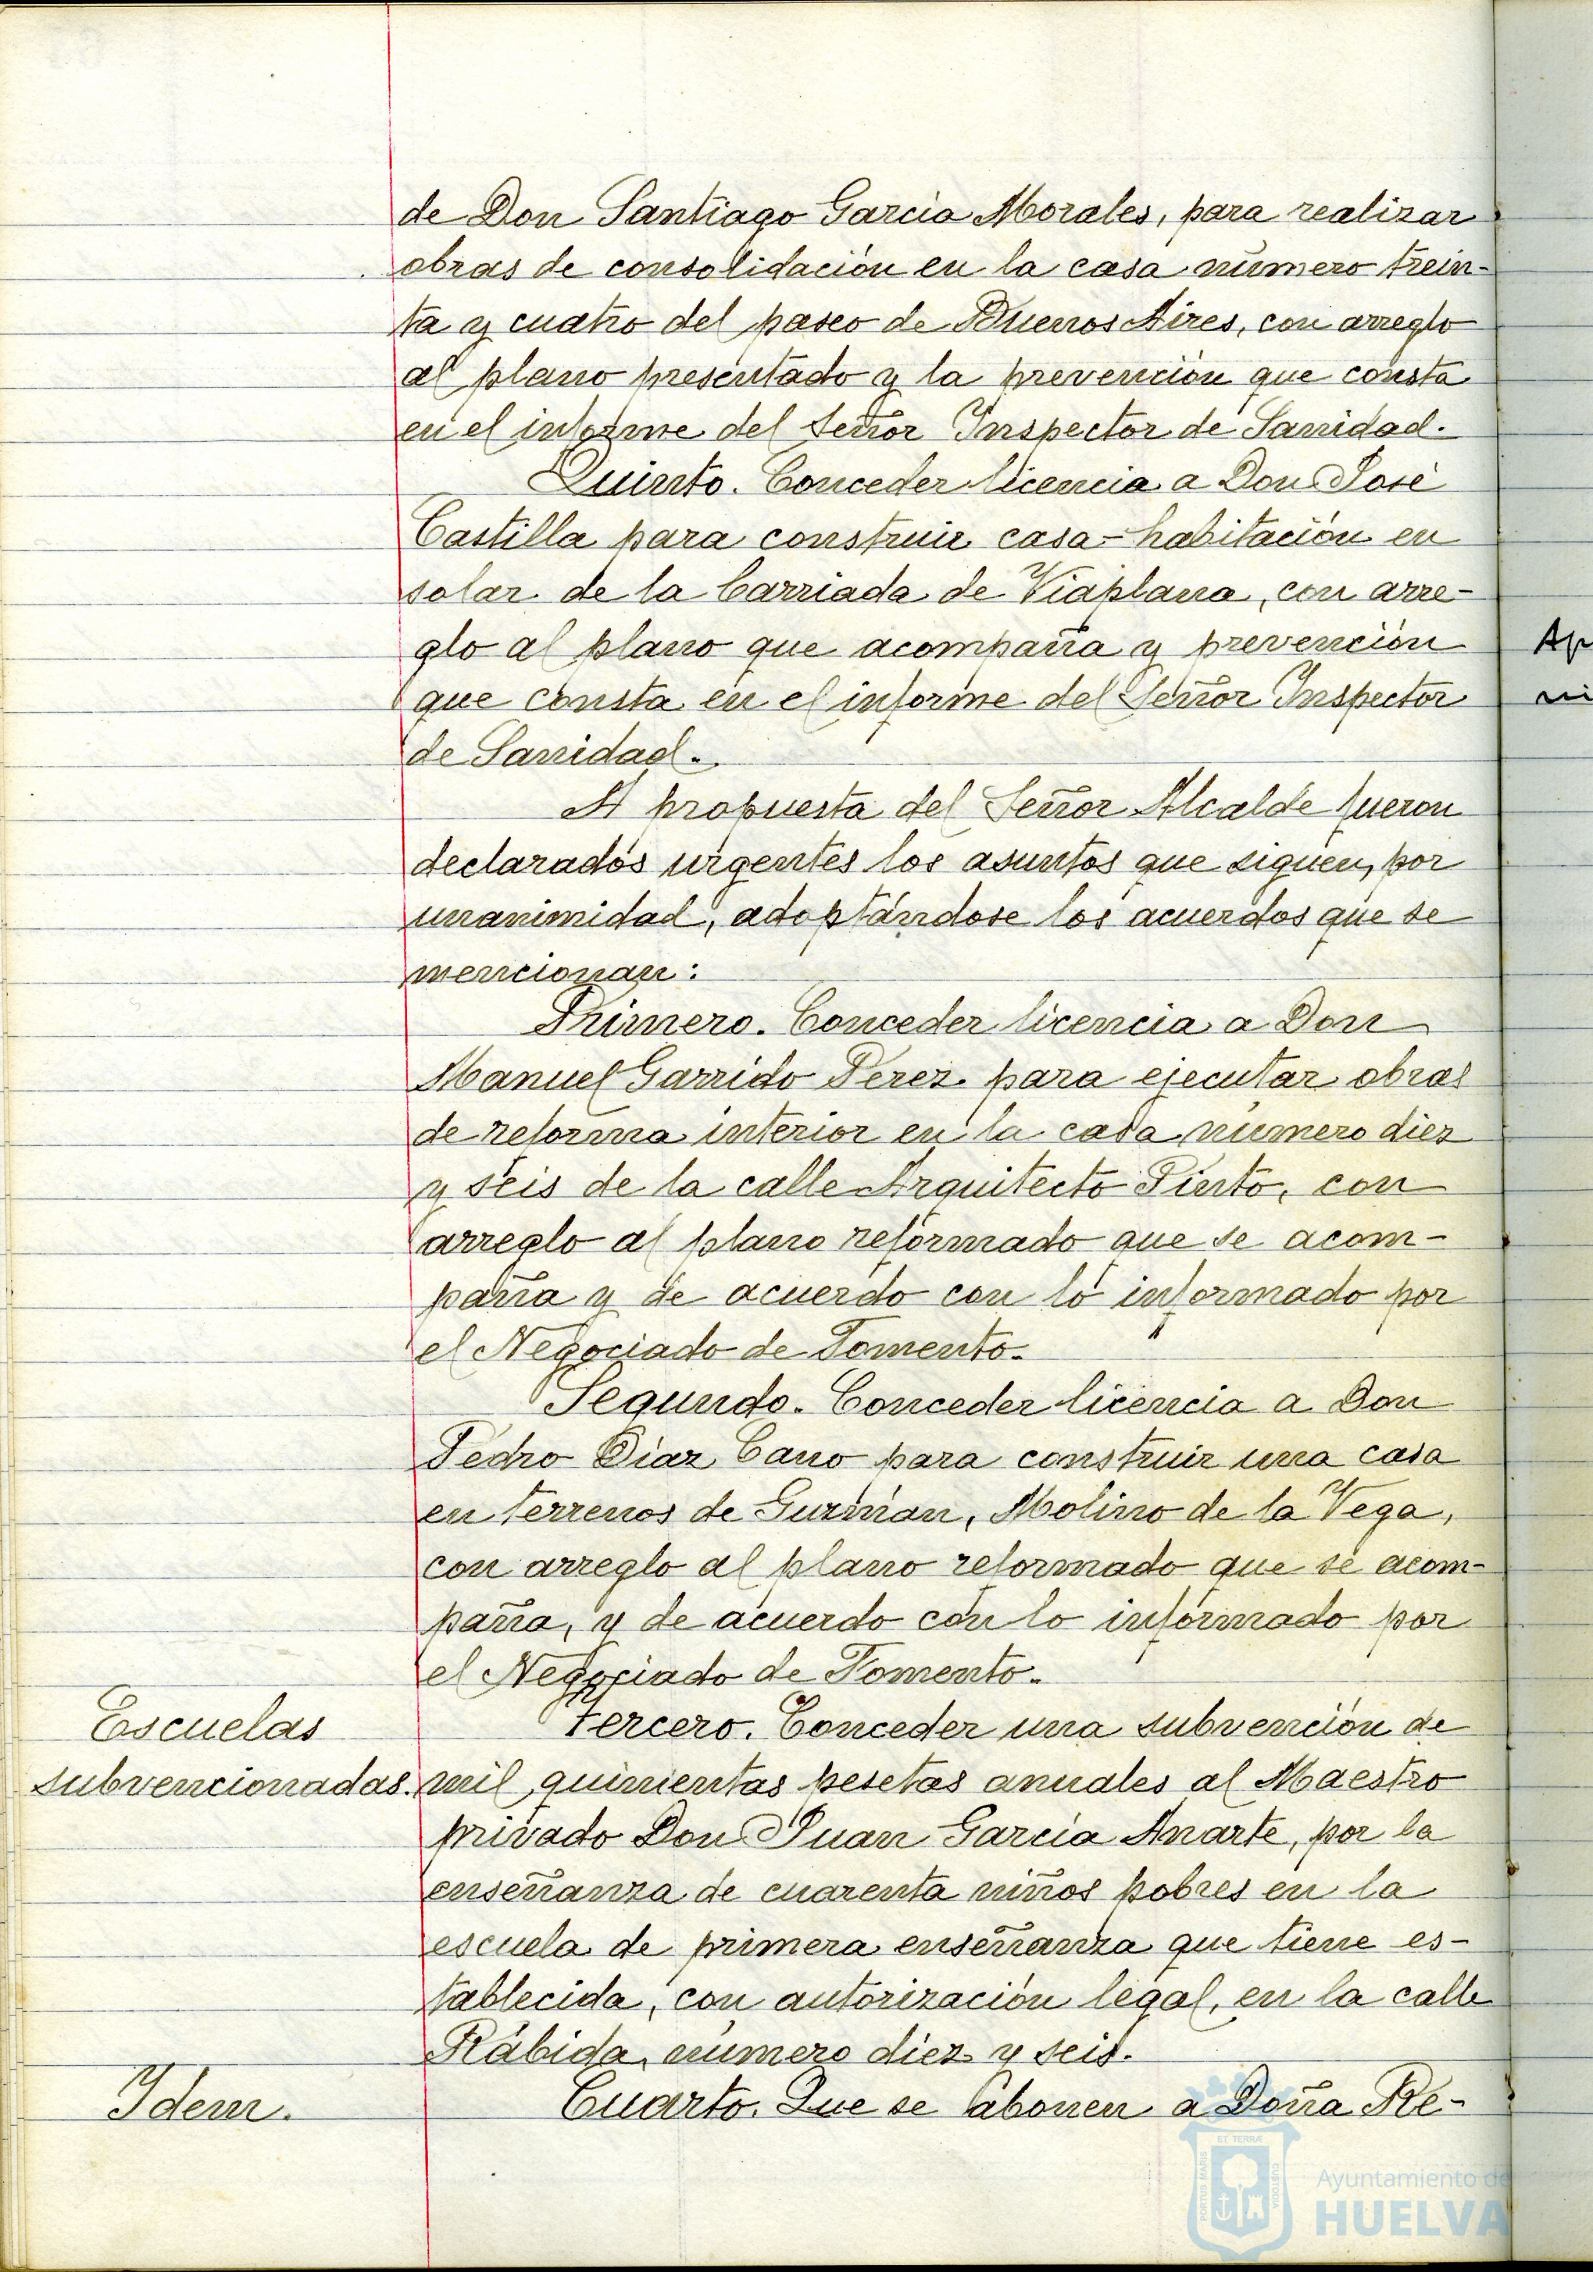 de Don Santiago García Morales, para realizar
obras de consolidación en la casa número trein-
ta y cuatro del paseo de Buenos Aires, con arreglo
al plano presentado y la prevención que consta
en el informe del Señor Inspector de Sanidad.
Quinto. Conceder licencia a Don José
Castilla para construir casa-habitación en
solar de la barriada de Viaplana, con arre-
glo al plano que acompaña y prevención
que consta en el informe del Señor Inspector
de Sanidad.
A propuesta del Señor Alcalde fueron
declarados urgentes los asuntos que siguen, por
unanimidad, adoptándose los acuerdos que se
mencionan:
Primero. Conceder licencia a Don
Manuel Garrido Perez para ejecutar obras
de reforma interior en la casa número diez
y seis de la calle Arquitecto Pinto, con
arreglo al plano reformado que se acom-
paña y de acuerdo con lo informado por
el Negociado de Fomento.
Segundo. Conceder licencia a Don
Pedro Díaz Cano para construir una casa
en terrenos de Guzmán, Molino de la Vega,
con arreglo al plano reformado que se acom-
paña, y de acuerdo con lo informado por
el Negociado de Fomento.
Escuelas
subvencionadas.
Tercero. Conceder una subvención de
mil quinientas pesetas anuales al Maestro
privado Don Juan García Anarte, por la
enseñanza de cuarenta niños pobres en la
escuela de primera enseñanza que tiene es-
tablecida, con autorización legal, en la calle
Rábida, número diez y seis.
Idem.
Cuarto. Que se abonen a Doña Re-
Ap
ni
PORTUS MARIS
ET TERRÆ
CUSTODIA
Ayuntamiento de
HUELVA